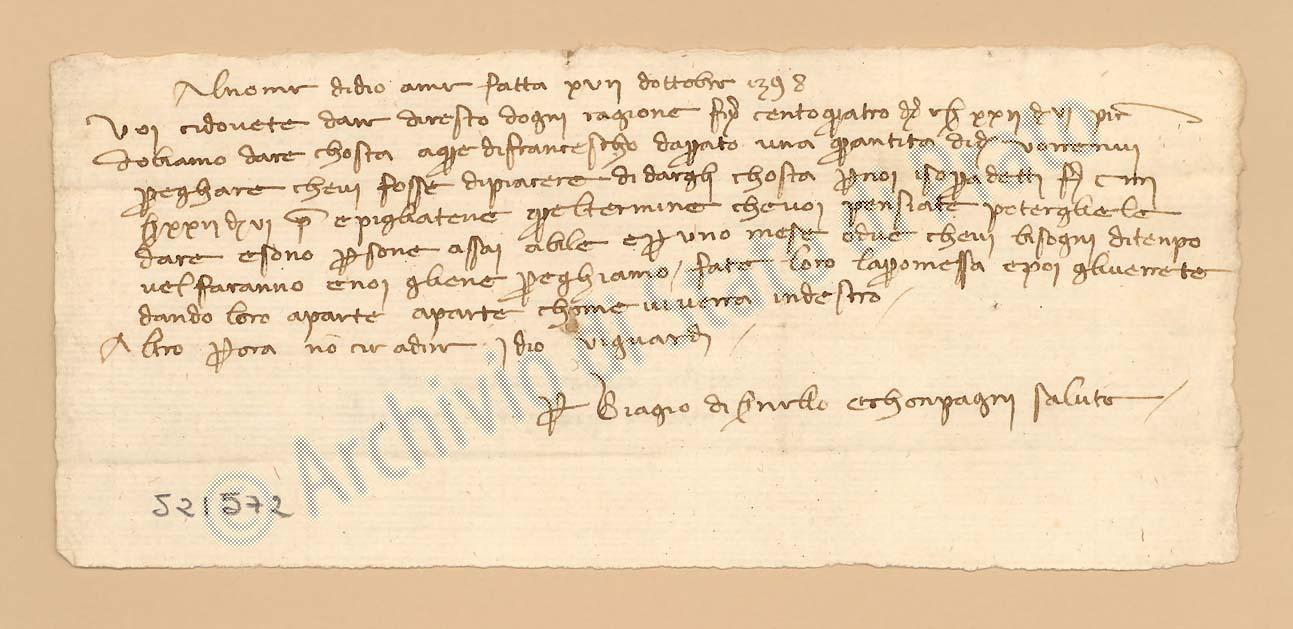 Al nome didio ame fatta xvii dottobre 1398
Voi cidovete dare diresto dogni ragione fi cento quatro d s xxii d vi pic
dobiamo dare chosta aque difrancescho daprato una quantita did vorremvi
preghare chevi fosse dipiacere didargli chosta pernoi isopradetti f ciiii
s xxii d vi p epigliateve queltermine chevoi pensiate
dare esono persone assai abile eper uno mese edue chevi bisogni ditenpo
velfaranno enoi gliene preghiamo / fate loro lapromessa epoi gliverrete
dando loro aparte aparte chome vi verra indestro /
Altro perora nō cie adire / Idio vi guardi /
per Biagio di echonpagni salute /
521572
© Archivio di Stato di Prato